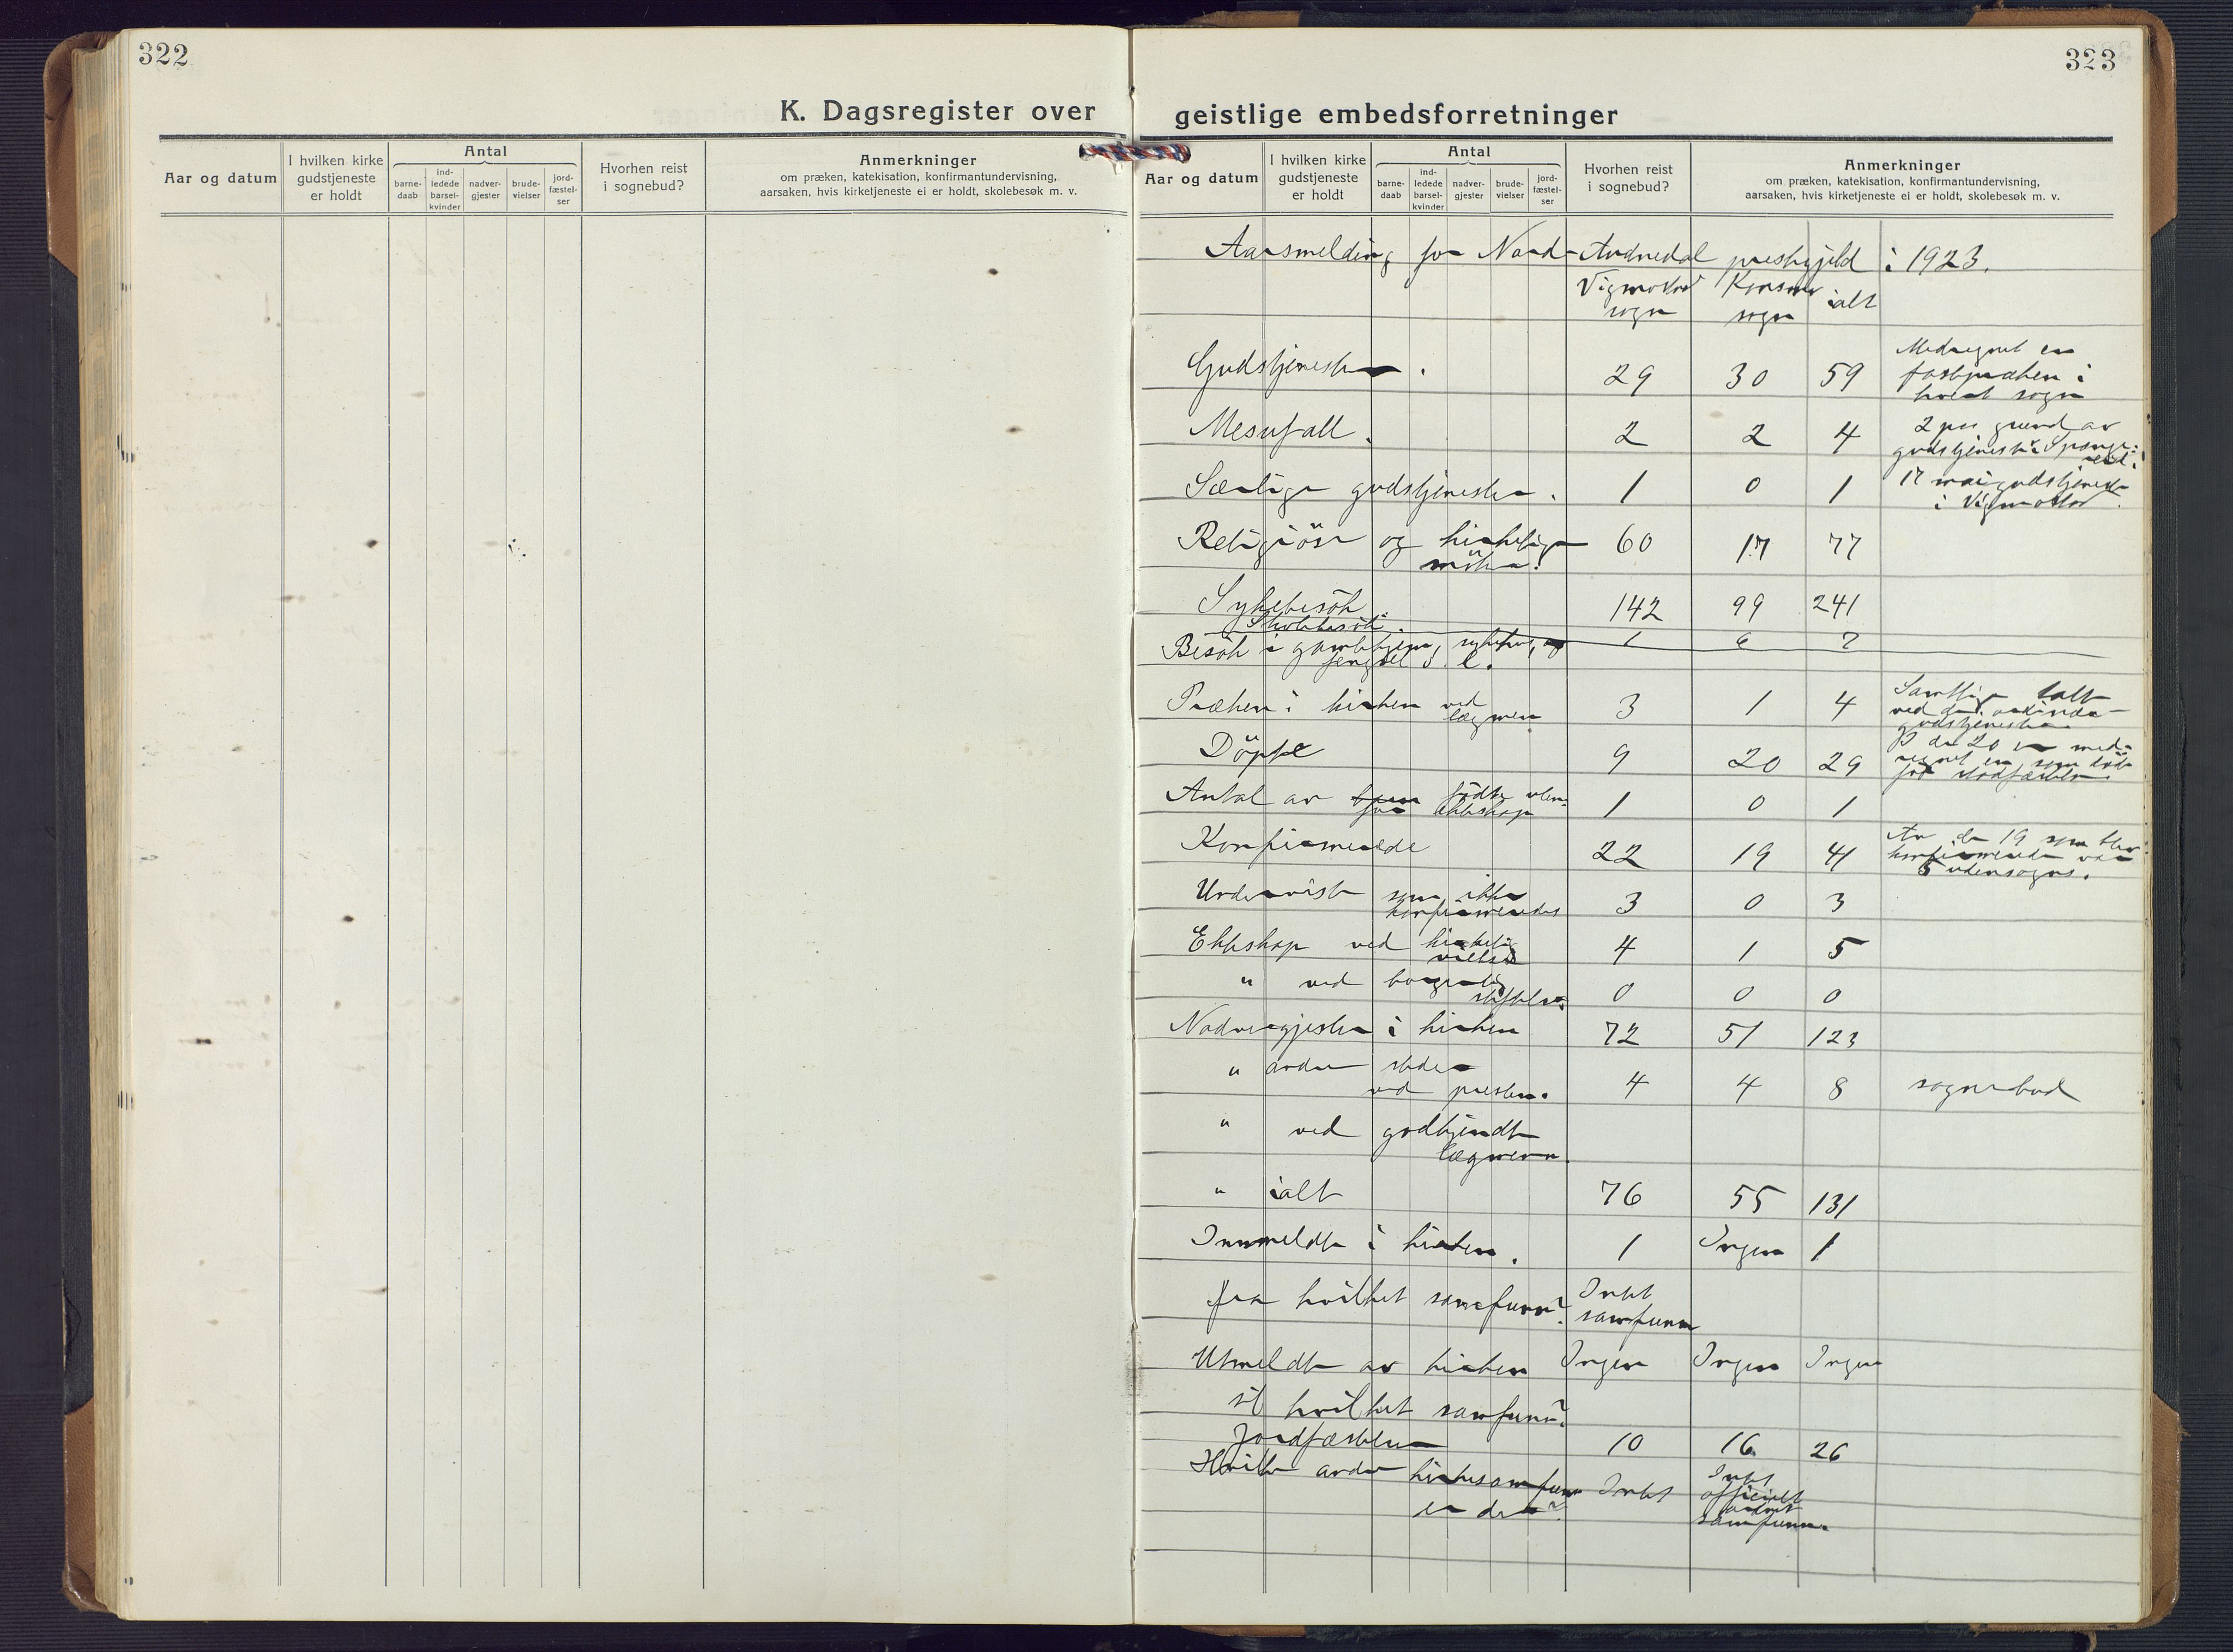 322
K. Dagsregister over
Aar og datum
I hvilken kirke
gudstjeneste
er holdt
Antal
barne-
daab
ind-
ledede
barsel-
kvinder
nadver-
gjester
brude-
vielser
jord-
fæstel-
ser
Hvorhen reist
i sognebud?
Anmerkninger
om præken, katekisation, konfirmantundervisning,
aarsaken, hvis kirketjeneste ei er holdt, skolebesøk m. v.
323
geistlige embedsforretninger
Aar og datum
I hvilken kirke
gudstjeneste
er holdt
Antal
barne-
daab
ind-
ledede
barsel-
kvinder
nadver-
gjester
brude-
vielser
jord-
fæstel-
ser
Hvorhen reist
i sognebud?
Anmerkninger
om præken, katekisation, konfirmantundervisning,
aarsaken, hvis kirketjeneste ei er holdt, skolebesøk m. v.
Aarsmelding for Nord-Audnedal prestegjeld i 1923.
Vigmostad sogn
Konsmo sogn
ialt
Gudstjenester. 29 30 59 Medregnet en
fastepræken i
hvert sogn
Messefall. 2 2 4 2 paa grund av
gudstjeneste i Spange-
reid.
Særlige gudstjenester. 1 0 1 17 mai gudstjeneste
i Vigmostad.
Religiöse og kirkelige 60 17 77
möter.
Sykebesök 142 99 241
Skolebesök. 1 6 7
Besök i gamlehjem, sykehus, og
fengsel o. l.
Præken i kirken ved 3 1 4 Samtlige talte
lægmen
ved de ordinære
gudstjenester
Döpte 9 20 29 I de 20 er med-
regnet en som döde
før stadfæstelsen.
Antal av barn födte uten- 1 0 1
for ekteskap
Konfirmerede 22 19 41 Av de 19 som blev
konfirmerede var
5 utensogns.
Underviste som ikke 3 0 3
konfirmeredes
Ekteskap ved kirkelig 4 1 5
vielse
" ved borgerlig 0 0 0
stiftelse.
Nadvergjester i kirken 72 51 123
" andre steder
ved presten. 4 4 8 sognebud
" ved godkjendte
lægmenn.
" ialt 76 55 131
Innmeldte i kirken. 1 Ingen 1
fra hvilket samfunn? Intet
samfunn
Utmeldte av kirken Ingen Ingen Ingen
til hvilket samfunn?
Jordfæstelser 10 16 26
Hvilke andre kirkesamfunn Intet Intet
er der?
officielt
ordnet
samfunn.